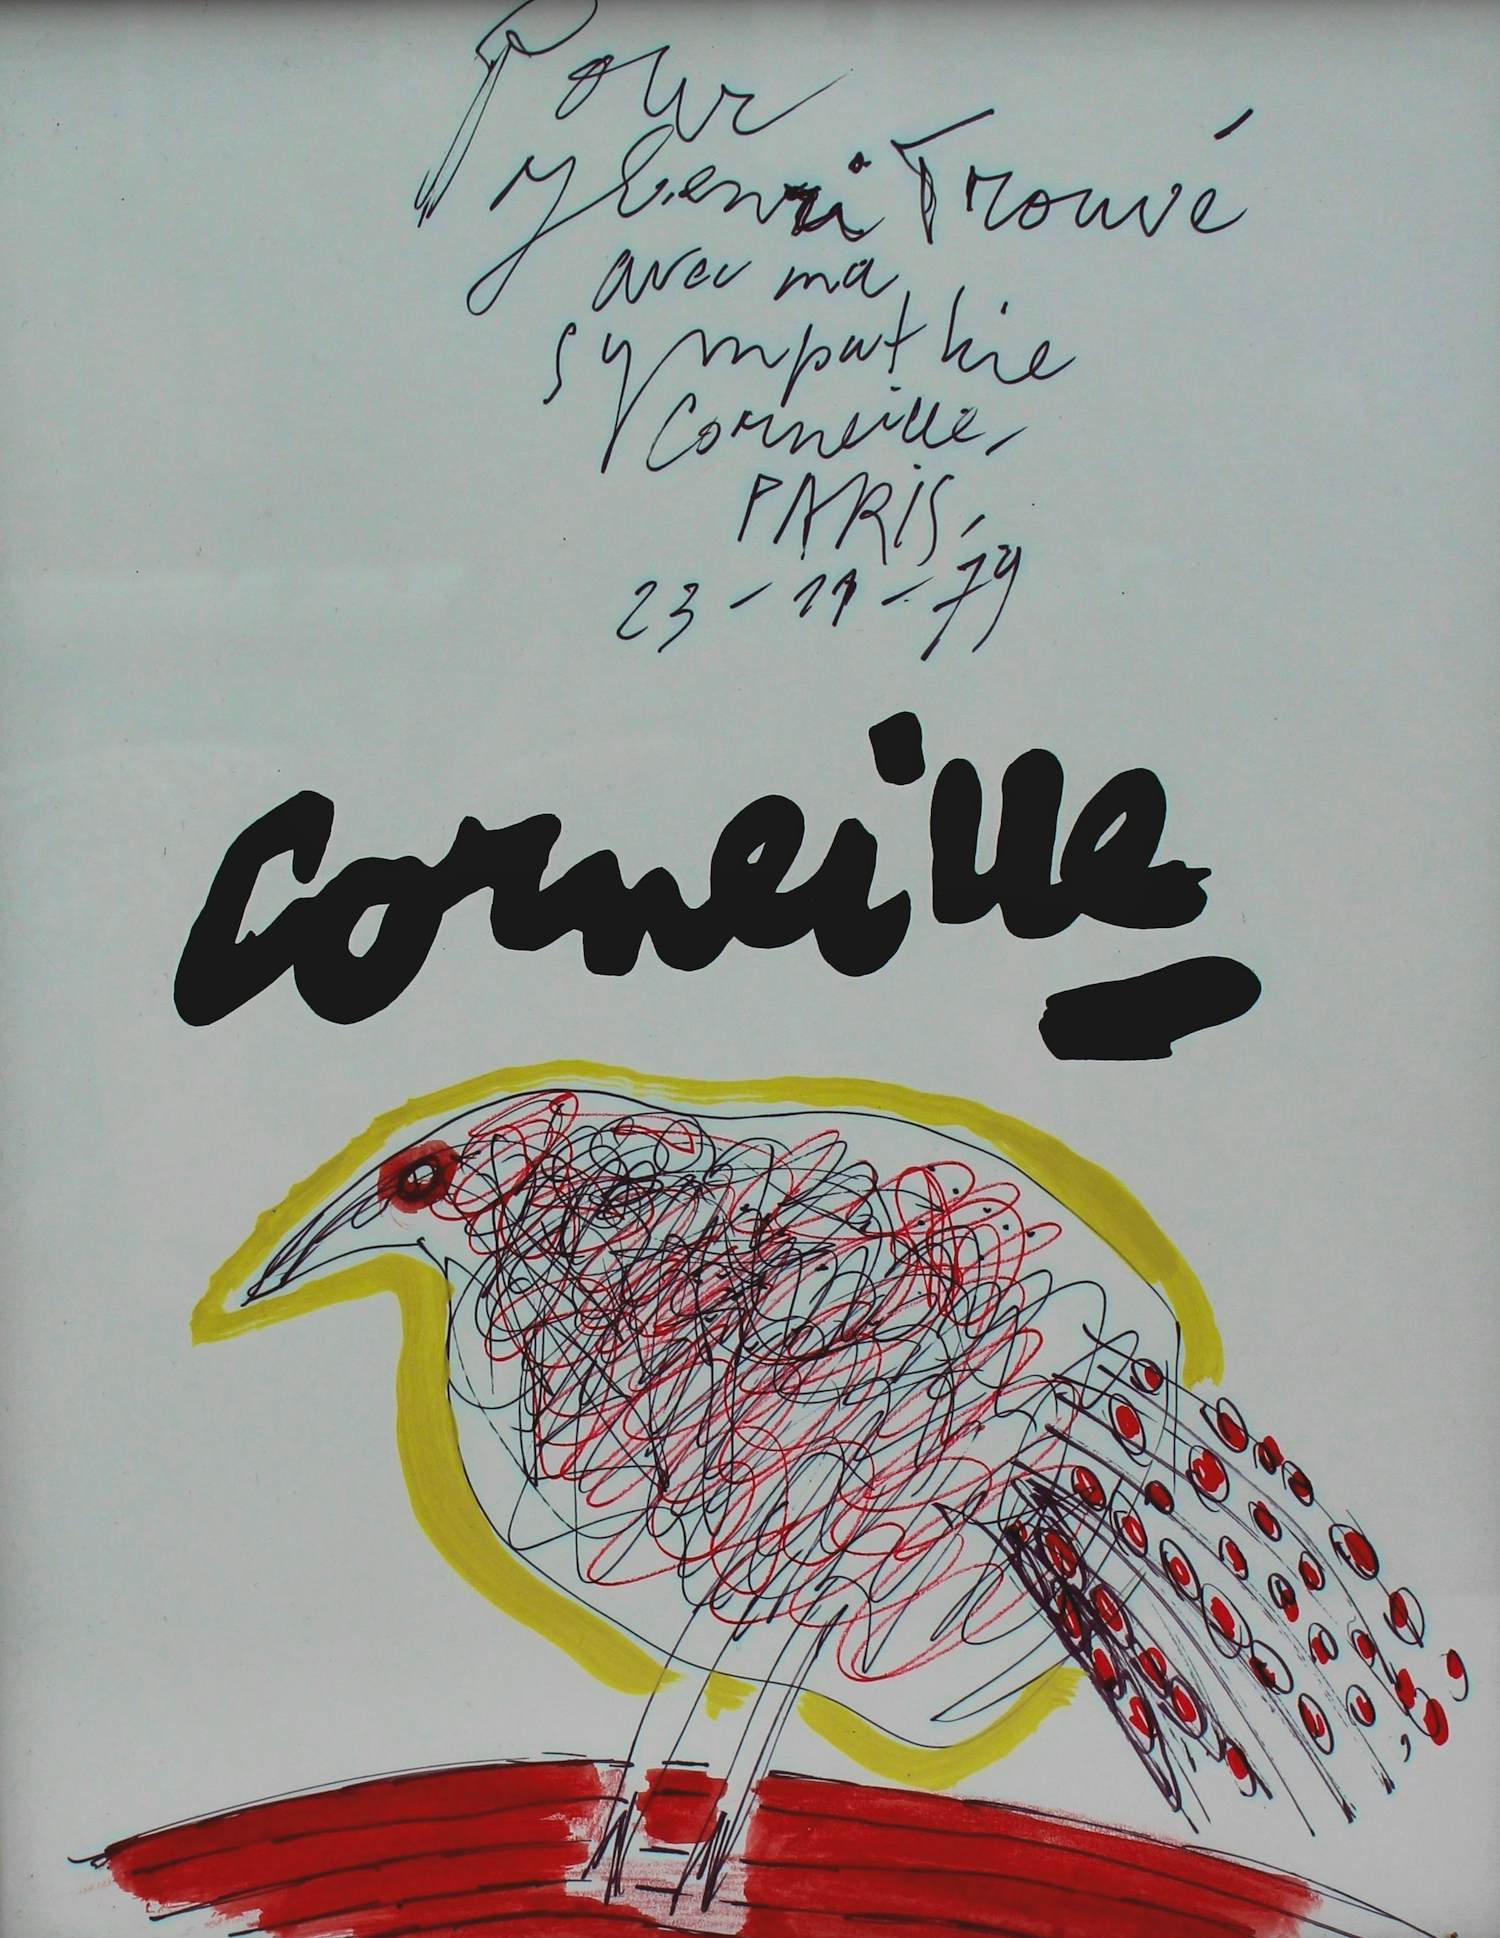 Pour
Henri Trouvé
avec ma
sympathie
Corneille,
PARIS,
23-11-79
Corneille